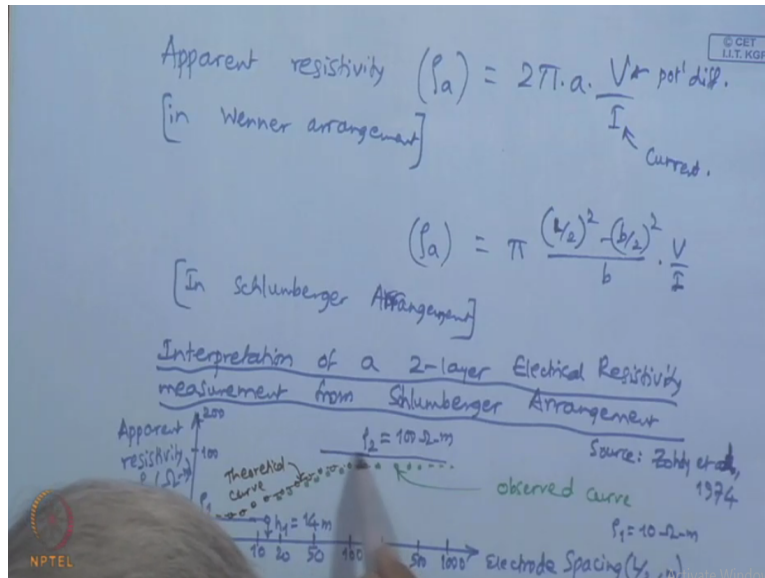 © CET
I.I.T. KGP
Apparent resistivity (ρa) = 2π.a. V/I
pot' diff.
Current.
[in Wenner arrangement]
(ρa) = π (L/2)² - (b/2)² / b . V/I
[In Schlumberger Arrangement]
Interpretation of a 2-layer Electrical Resistivity
measurement from Shlumberger Arrangement
Source: Zohdy et al,
1974
Apparent
resistivity
200
100
ρ2 = 100 Ω-m
Theoretical
curve
observed curve
ρ1
h1 = 14 m
ρ1 = 10 Ω-m
10 20 50 100 500 1000
Electrode Spacing
NPTEL